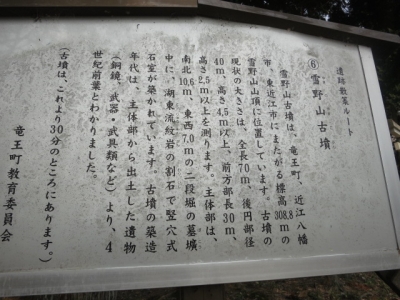 遺跡散策ルー
⑥ 雪野山古墳
雪野山古墳は、竜王町、近江八幡
市、東近江市にまたがる標高308.8mの
雪野山山頂に位置しています。古墳の
現状の大きさは、全長70m、後円部径
40m、高さ4.5m以上、前方部長30m、
高さ2.5m以上を測ります。主体部は、
南北10.6m、東西7.0mの二段堀の墓壙
中に、湖東流紋岩の割石で竪穴式
石室が築かれています。古墳の築造
年代は、主体部から出土した遺物
（銅鏡、武器・武具類など）より、4
世紀前葉とわかりました。
（古墳は、これより30分のところにあります。）
竜王町教育委員会